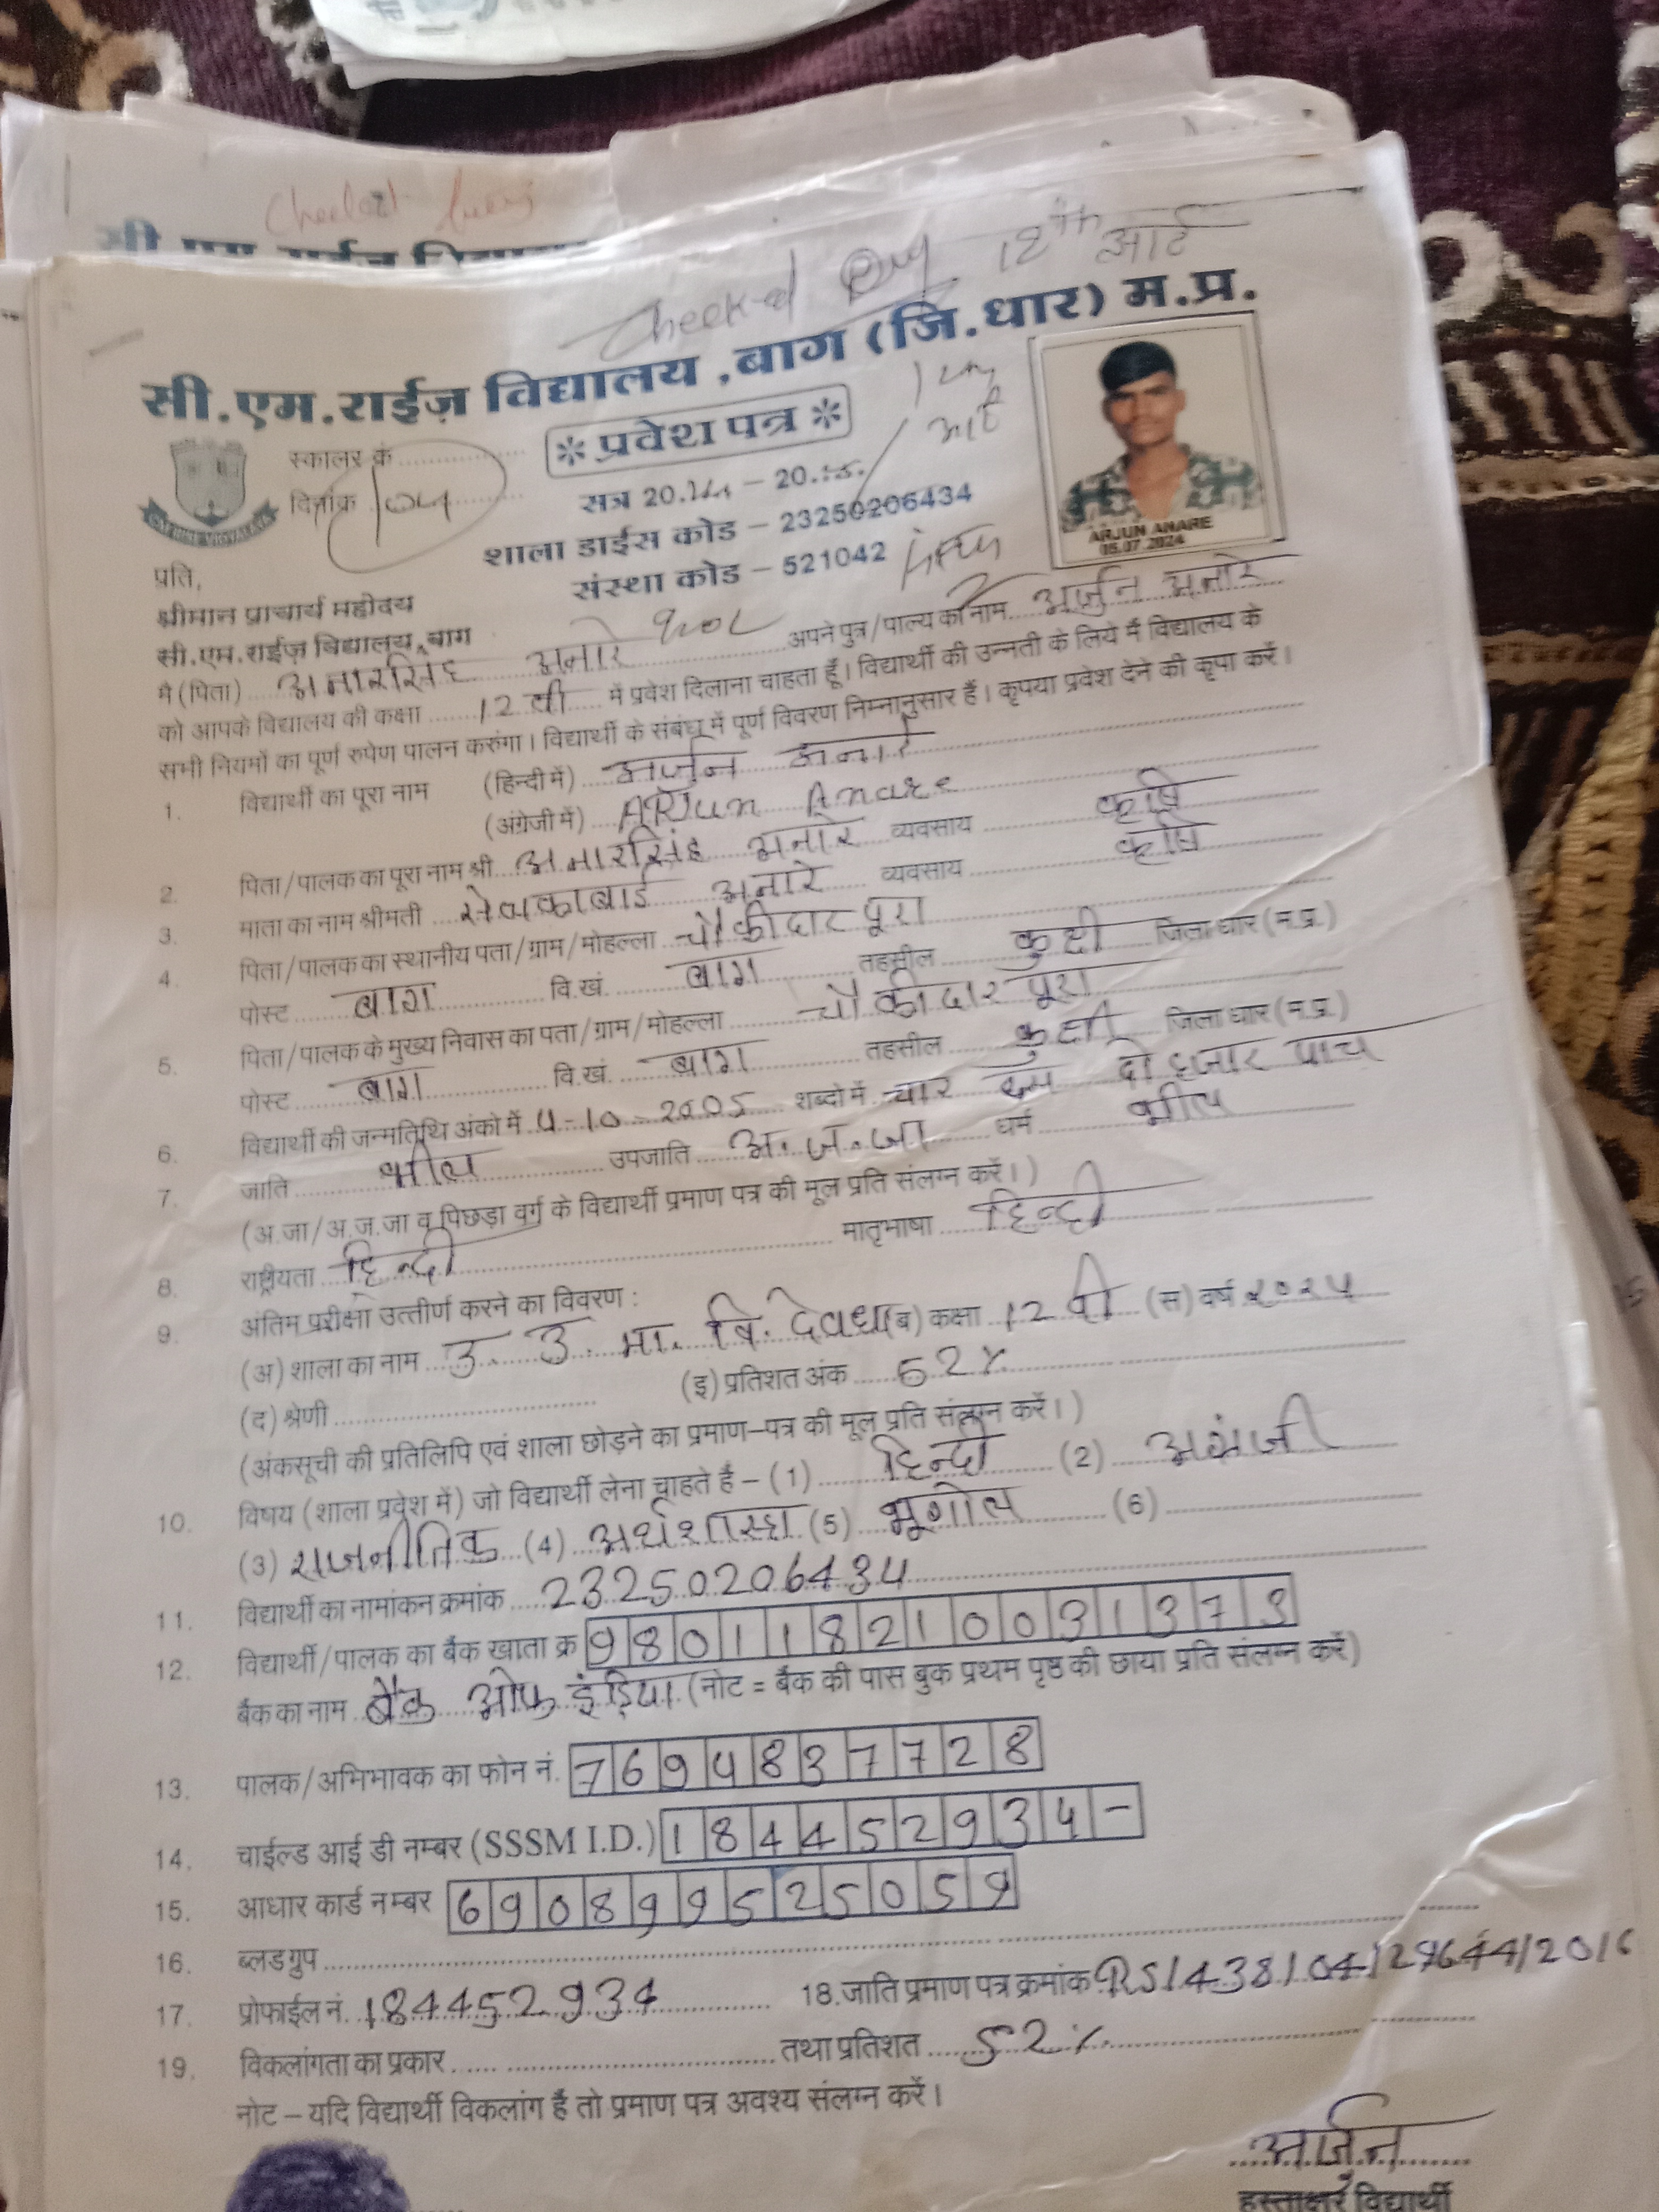 Checked
Checked 12th आर्ट
सी.एम.राईज़ विद्यालय ,बाग (जि.धार) म.प्र.
* प्रवेश पत्र *
स्कालर क्रं
दिनांक
सत्र 20 – 20
शाला डाईस कोड – 23250206434
संस्था कोड – 521042
ARJUN ANARE
05.07.2024
प्रति,
श्रीमान प्राचार्य महोदय
सी.एम.राईज़ विद्यालय, बाग
मै (पिता) अनारसिंह अनारे अपने पुत्र/पाल्य का नाम अर्जुन अनारे
को आपके विद्यालय की कक्षा 12 वी में प्रवेश दिलाना चाहता हूँ। विद्यार्थी की उन्नती के लिये मैं विद्यालय के
सभी नियमों का पूर्ण रुपेण पालन करुंगा। विद्यार्थी के संबंध में पूर्ण विवरण निम्नानुसार हैं। कृपया प्रवेश देने की कृपा करें।
1. विद्यार्थी का पूरा नाम (हिन्दी में) अर्जुन अनारे
(अंग्रेजी में) ARJun Anare
2. पिता/पालक का पूरा नाम श्री अनारसिंह अनारे व्यवसाय कृषि
3. माता का नाम श्रीमती अनारे व्यवसाय कृषि
4. पिता/पालक का स्थानीय पता/ग्राम/मोहल्ला चौकीदार पूरा
पोस्ट बाग वि.खं. बाग तहसील कुक्षी जिला धार (म.प्र.)
5. पिता/पालक के मुख्य निवास का पता/ग्राम/मोहल्ला चौकीदार पूरा
पोस्ट बाग वि.खं. बाग तहसील कुक्षी जिला धार (म.प्र.)
6. विद्यार्थी की जन्मतिथि अंको में 4-10-2005 शब्दो में चार दस दो हजार पाच
7. जाति भील उपजाति अ.ज.जा धर्म भील
(अ.जा/अ.ज.जा व पिछड़ा वर्ग के विद्यार्थी प्रमाण पत्र की मूल प्रति संलग्न करें।)
8. राष्ट्रीयता हिन्दी मातृभाषा हिन्दी
9. अंतिम परीक्षा उत्तीर्ण करने का विवरण :
(अ) शाला का नाम उ. उ. मा. वि. देवधा (ब) कक्षा 12 वी (स) वर्ष २०२५
(द) श्रेणी (इ) प्रतिशत अंक 52%
(अंकसूची की प्रतिलिपि एवं शाला छोड़ने का प्रमाण–पत्र की मूल प्रति संलग्न करें।)
10. विषय (शाला प्रवेश में) जो विद्यार्थी लेना चाहते है – (1) हिन्दी (2) अग्रंजी
(3) राजनीतिक (4) अर्थशास्त्र (5) भूगोल (6)
11. विद्यार्थी का नामांकन क्रमांक 23250206434
12. विद्यार्थी/पालक का बैंक खाता क्र 980118210031373
बैंक का नाम बैंक ओफ इंड़िया (नोट = बैंक की पास बुक प्रथम पृष्ठ की छाया प्रति संलग्न करें)
13. पालक/अभिभावक का फोन नं. 7694837728
14. चाईल्ड आई डी नम्बर (SSSM I.D.) 184452934–
15. आधार कार्ड नम्बर 690899525059
16. ब्लडग्रुप
17. प्रोफाईल नं. 184452934 18. जाति प्रमाण पत्र क्रमांक RS/438/04/29644/2016
19. विकलांगता का प्रकार तथा प्रतिशत 52%
नोट – यदि विद्यार्थी विकलांग है तो प्रमाण पत्र अवश्य संलग्न करें।
अर्जुन
हस्ताक्षर विद्यार्थी